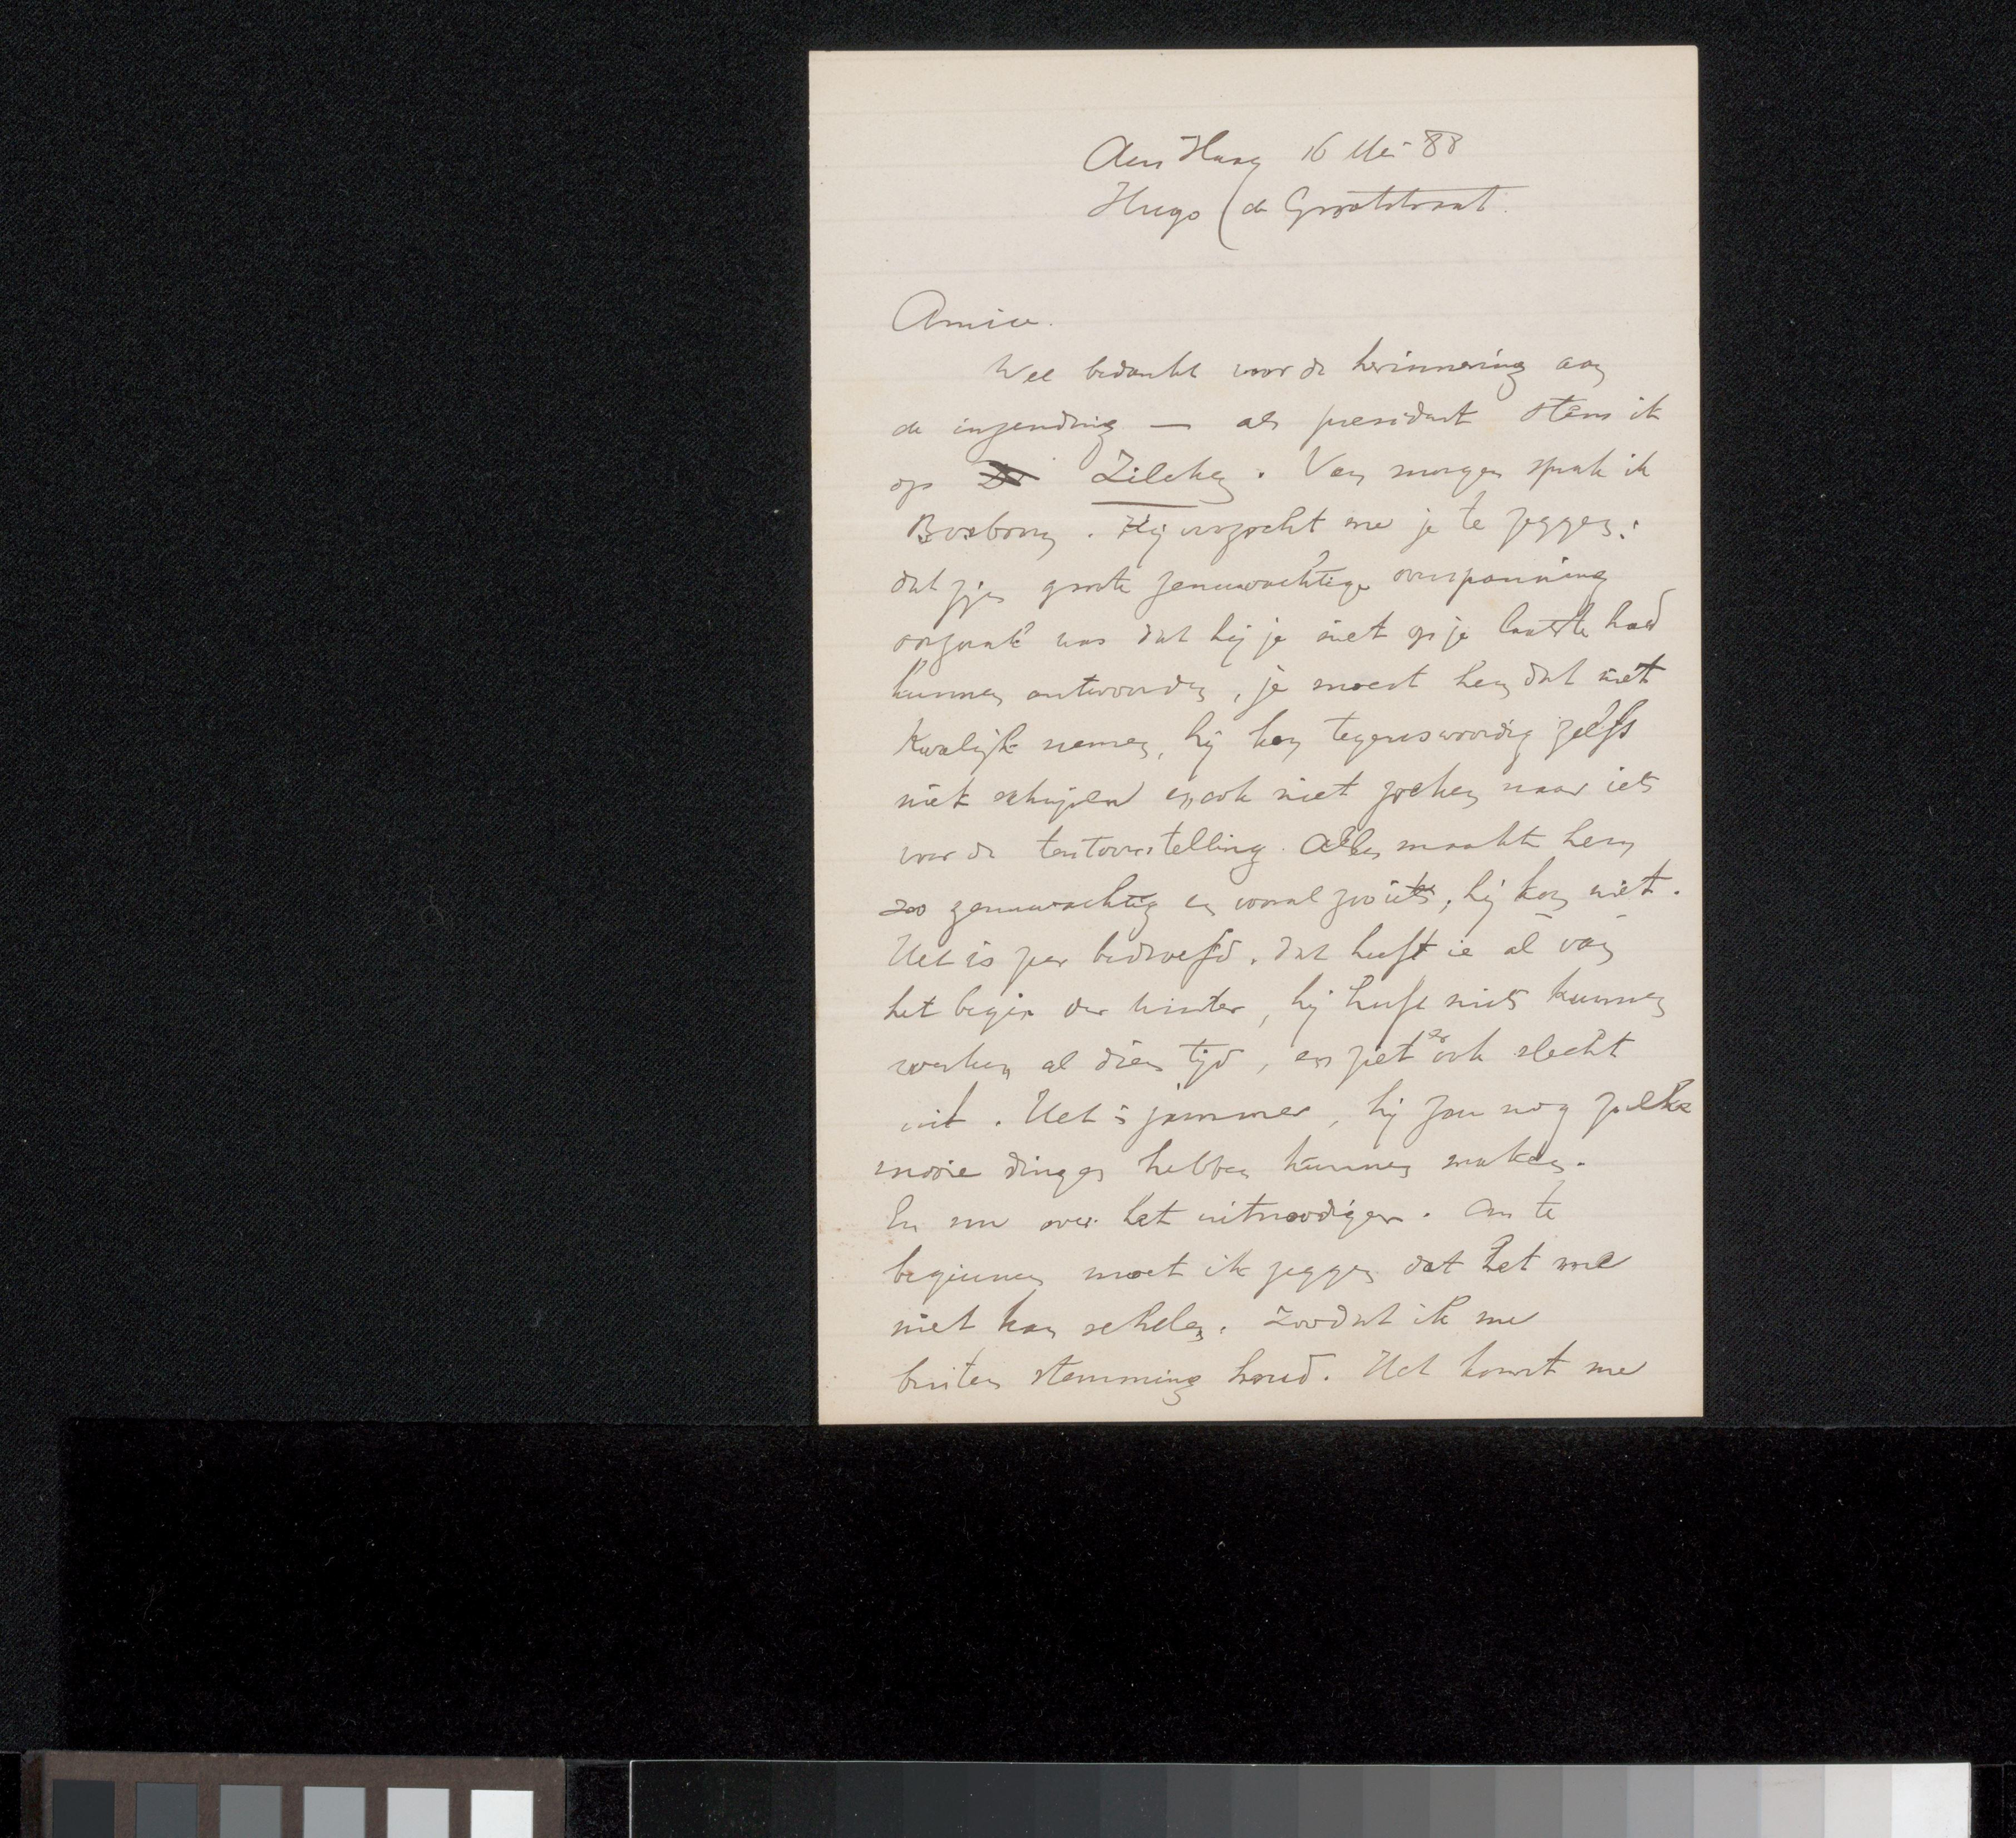 den Haag 16 Mei 88
Hugo de Grootstraat.
Amice.
Wel bedankt voor de herinnering aan
de inzending — als president stem ik
op Zilcken. Van morgen sprak ik
Bosboom. Hij verzocht me je te zeggen:
dat zijn groote zenuwachtige overspanning
oorzaak was dat hij je niet op je laatste had
kunnen antwoorden, je moest hem dat niet
kwalijk nemen, hij kon tegenswoordig zelfs
niet schrijven en ook niet zoeken naar iets
voor de tentoonstelling. Alles maakte hem
zoo zenuwachtig en vooral zooiets, hij kon niet.
Het is zeer bedroefd. Dat heeft ie al van
het begin der winter, hij heeft niets kunnen
werken al dien tijd, en ziet er ook slecht
uit. Het is jammer, hij zou nog zulke
mooie dingen hebben kunnen maken.
En nu over het uitnoodigen. Om te
beginnen moet ik zeggen dat het me
niet kan schelen. Zoodat ik me
buiten stemming houd. Het komt me